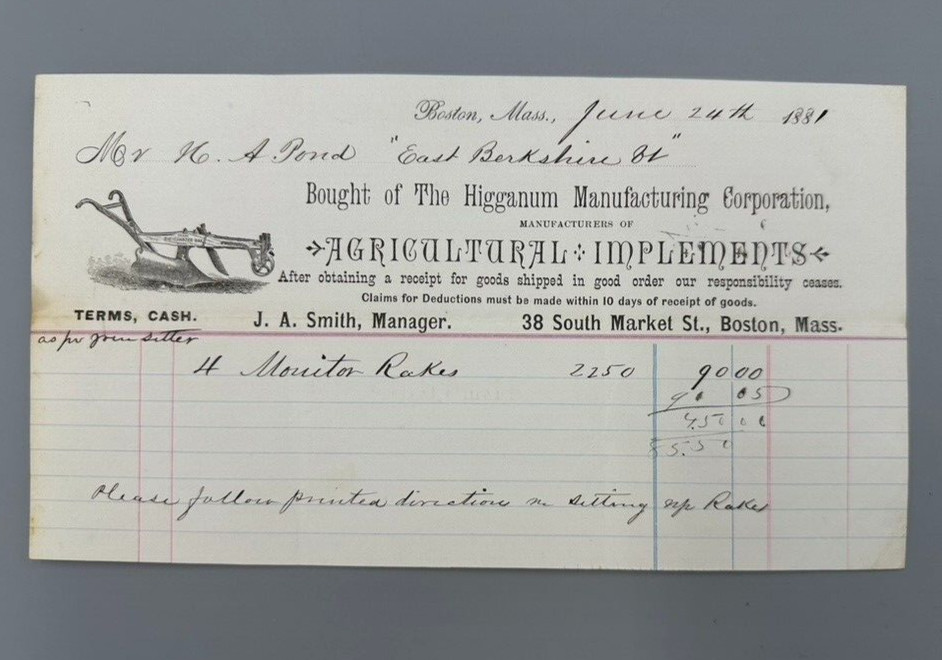 Boston, Mass., June 24th 1881
Mr H. A Pond "East Berkshire Vt"
Bought of The Higganum Manufacturing Corporation,
MANUFACTURERS OF
AGRICULTURAL IMPLEMENTS
After obtaining a receipt for goods shipped in good order our responsibility ceases.
Claims for Deductions must be made within 10 days of receipt of goods.
TERMS, CASH. J. A. Smith, Manager. 38 South Market St., Boston, Mass.
as per
4 Monitor Rakes 2250 9000
4.50
85.50
Please follow printed direction in sitting up Rakes